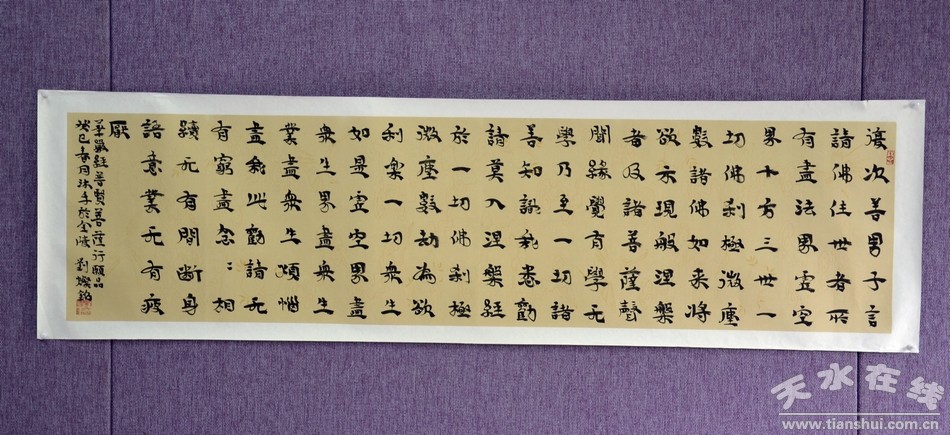 復次善男子言
請佛住世者所
有盡法界虛空
界十方三世一
切佛刹極微塵
數諸佛如来將
欲示現般涅槃
者及諸菩薩聲
聞緣覺有學无
學乃至一切諸
善知識我悉勸
請莫入涅槃經
於一切佛刹極
微塵數劫為欲
利樂一切衆生
如是虛空界盡
衆生界盡衆生
業盡衆生煩惱
盡我此勸請无
有窮盡念〻相
續无有間斷身
語意業无有疲
厭
華嚴經普賢菩薩行願品
癸巳春月沐手於金陵 劉燦銘
天水在线
www.tianshui.com.cn